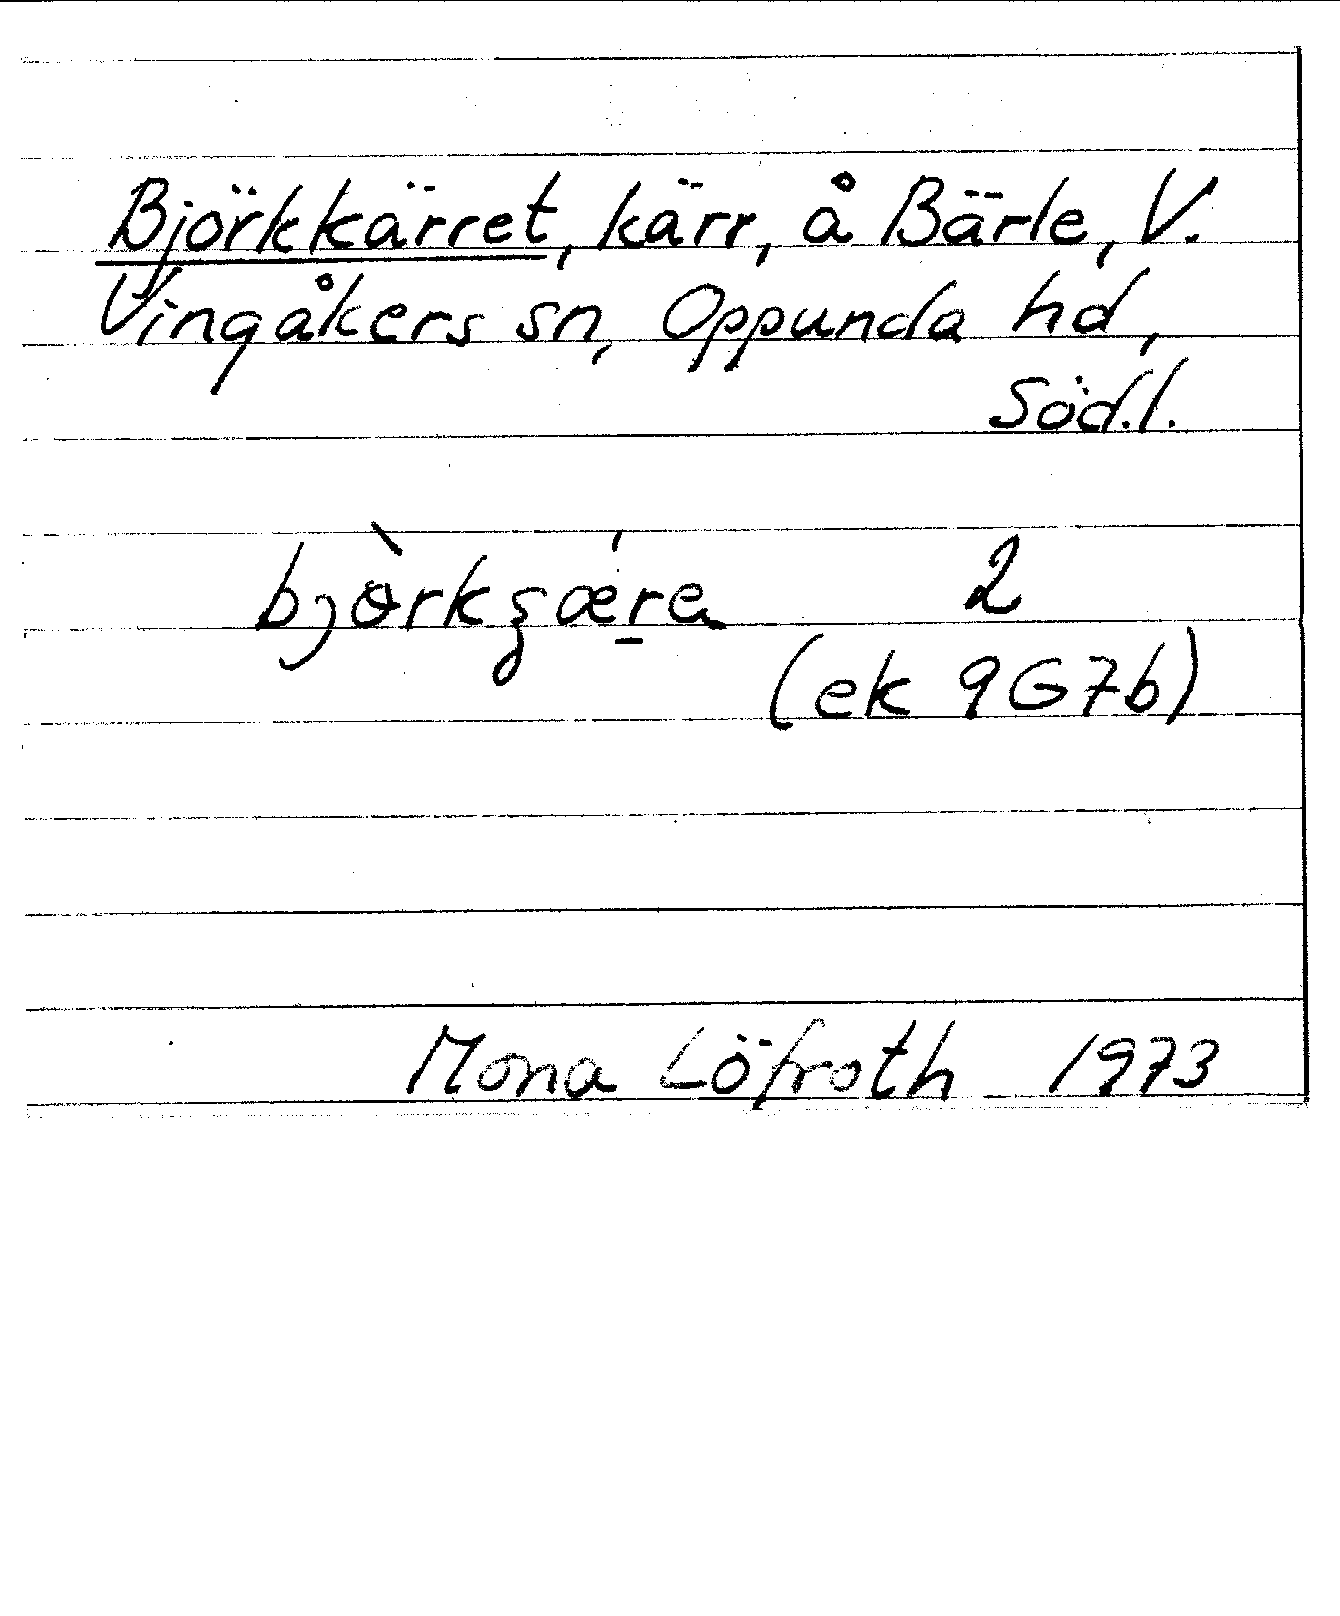 Björkkärret, kärr, å Bärle, V.
Vingåkers sn, Oppunda hd,
Söd.l.
2
(ek 9G7b)
Mona Löfroth 1973